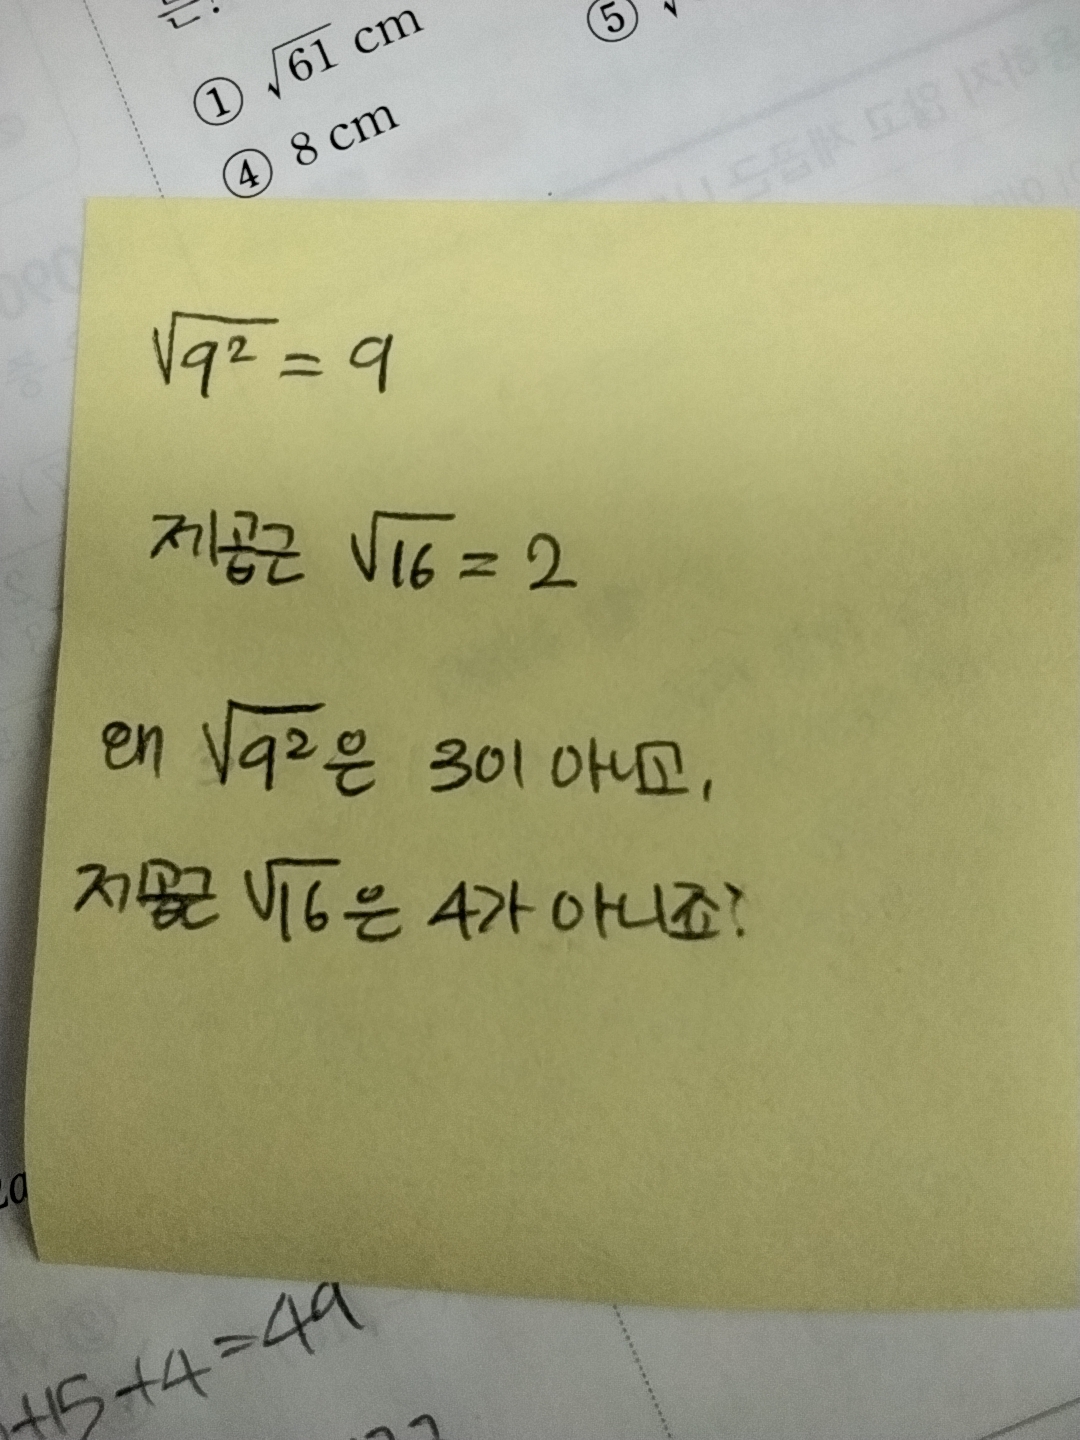 ① √61 cm
⑤ √
④ 8 cm
√9² = 9
제곱근 √16 = 2
왜 √9²은 3이 아니고,
제곱근 √16은 4가 아니죠?
+15+4=49